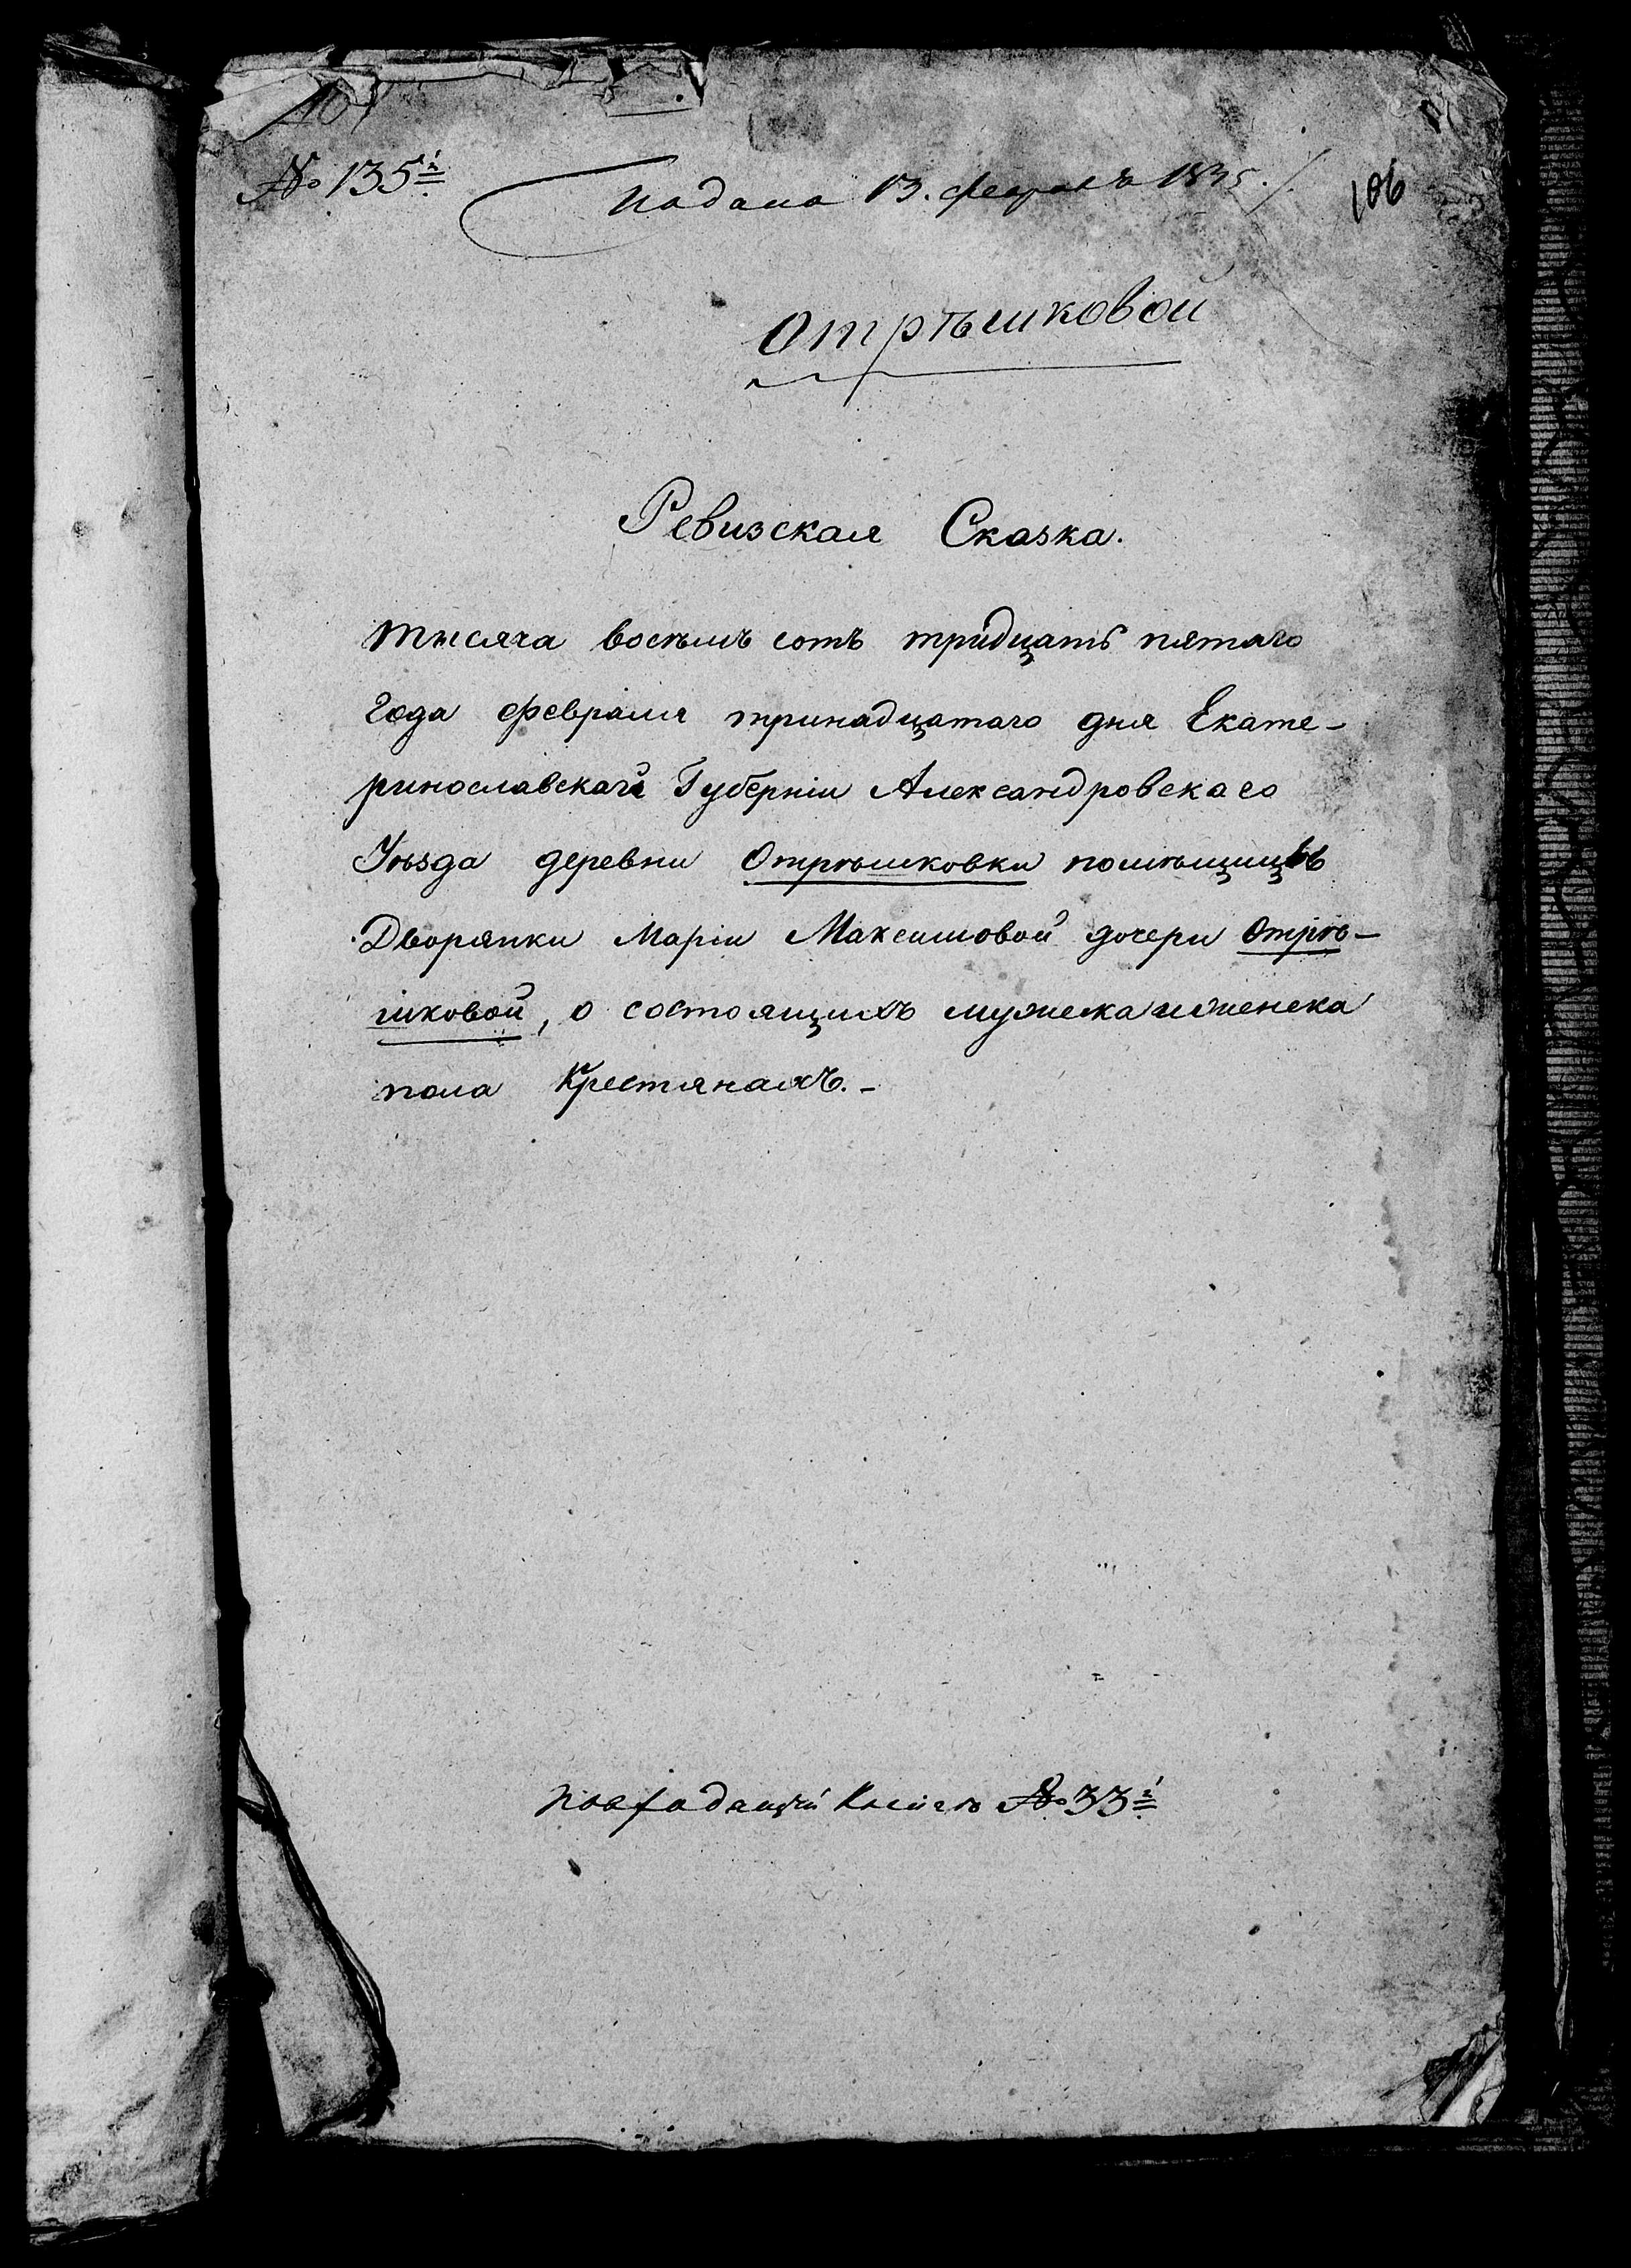 № 135й
Подана 13. февраля 1835.
106
Отрѣшковой
Ревизская Сказка.
тысяча восѣмь сотъ тридцать пятаго
года февраля тринадцатаго дня Екате-
ринославской Губерніи Александровскаго
Уѣзда деревни Отрѣшковки помѣщицы
Дворянки Маріи Максимовой дочери Отрѣ-
шковой, о состоящихъ мужеска и женска
пола Крестянахъ.-
№ 33й